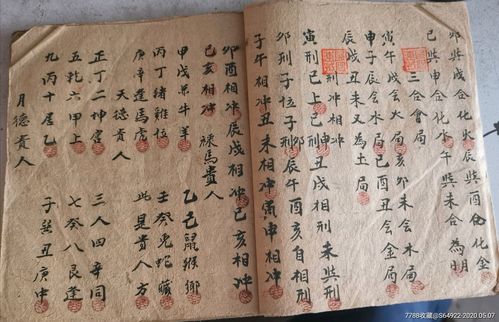 卯與戌合化火辰與酉合化金
巳與申合化水午與未合為明
三合會局
寅午戌会火局亥卯未会木局
申子辰会水局巳酉丑会金局
辰戌丑未又為土局
刑冲相冲
寅刑巳上巳刑申丑戌相刑未與刑
卯刑子位子刑卯辰午酉亥自相刑
子午相冲丑未相冲寅申相冲
卯酉相冲辰戌相冲巳亥相冲
巳亥相冲 祿馬貴人
甲戊兼牛羊 乙己鼠猴鄉
丙丁猪雞位 壬癸兔蛇藏
庚辛逢馬虎 此是貴人方
天德貴人
正丁二神宮 三人四辛同
五乾六甲上 七癸八艮逢
九丙十居乙 子巽丑庚中
月德貴人
7788收藏@S64922-2020.05.07